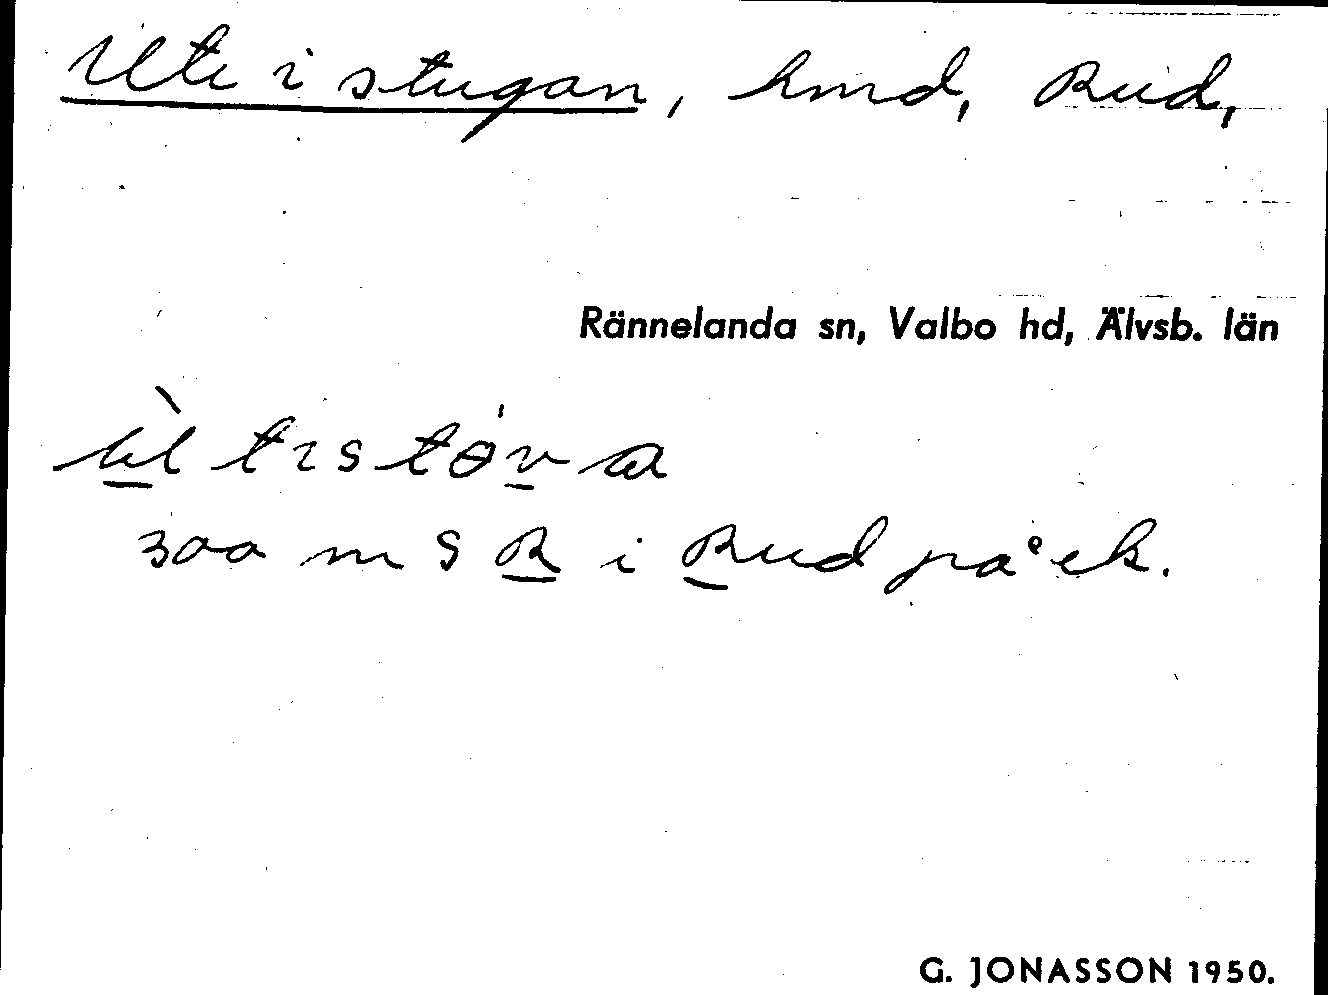 Ute i stugan, hmd, Rud,
Rännelanda sn, Valbo hd, Älvsb. län
ùtıstǿva
300 m S R i Rud på ek.
G. JONASSON 1950.